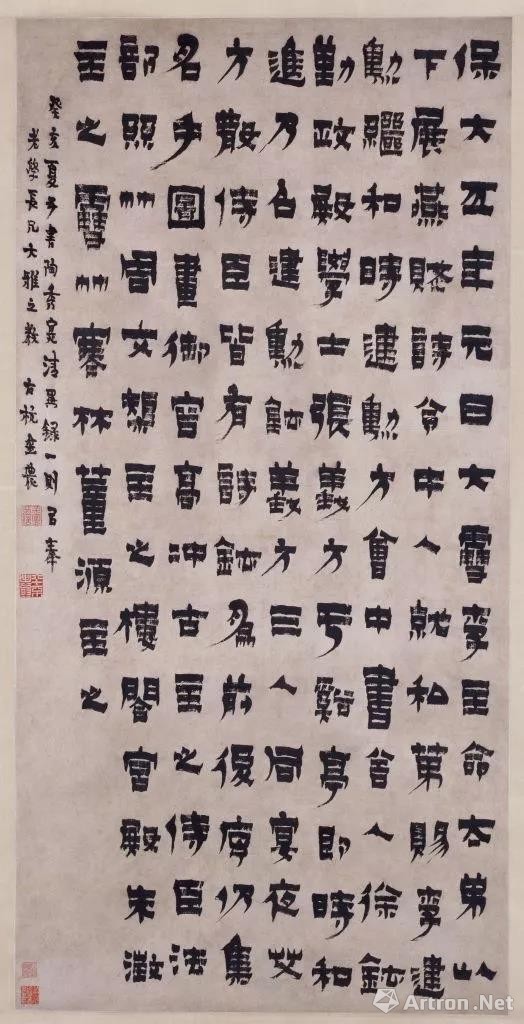 保大五年元日大雪李主命太弟以
下展燕賦詩令中人就和第賜李建
勳繼和時建勳方會中書舍人徐鉉
勤政殿學士張義方于谿亭即時和
進乃召建勳鉉義方三人同宴夜艾
方散侍臣皆有詩鉉為前後序仍集
名手圖畫御容高沖古主之侍臣法
部絲竹周文矩主之樓閣宮殿朱澂
主之雪竹寒林董源主之
癸亥夏五書陶秀實清異錄一則以奉
老學長兄大雅之教 古杭金農
Artron.Net